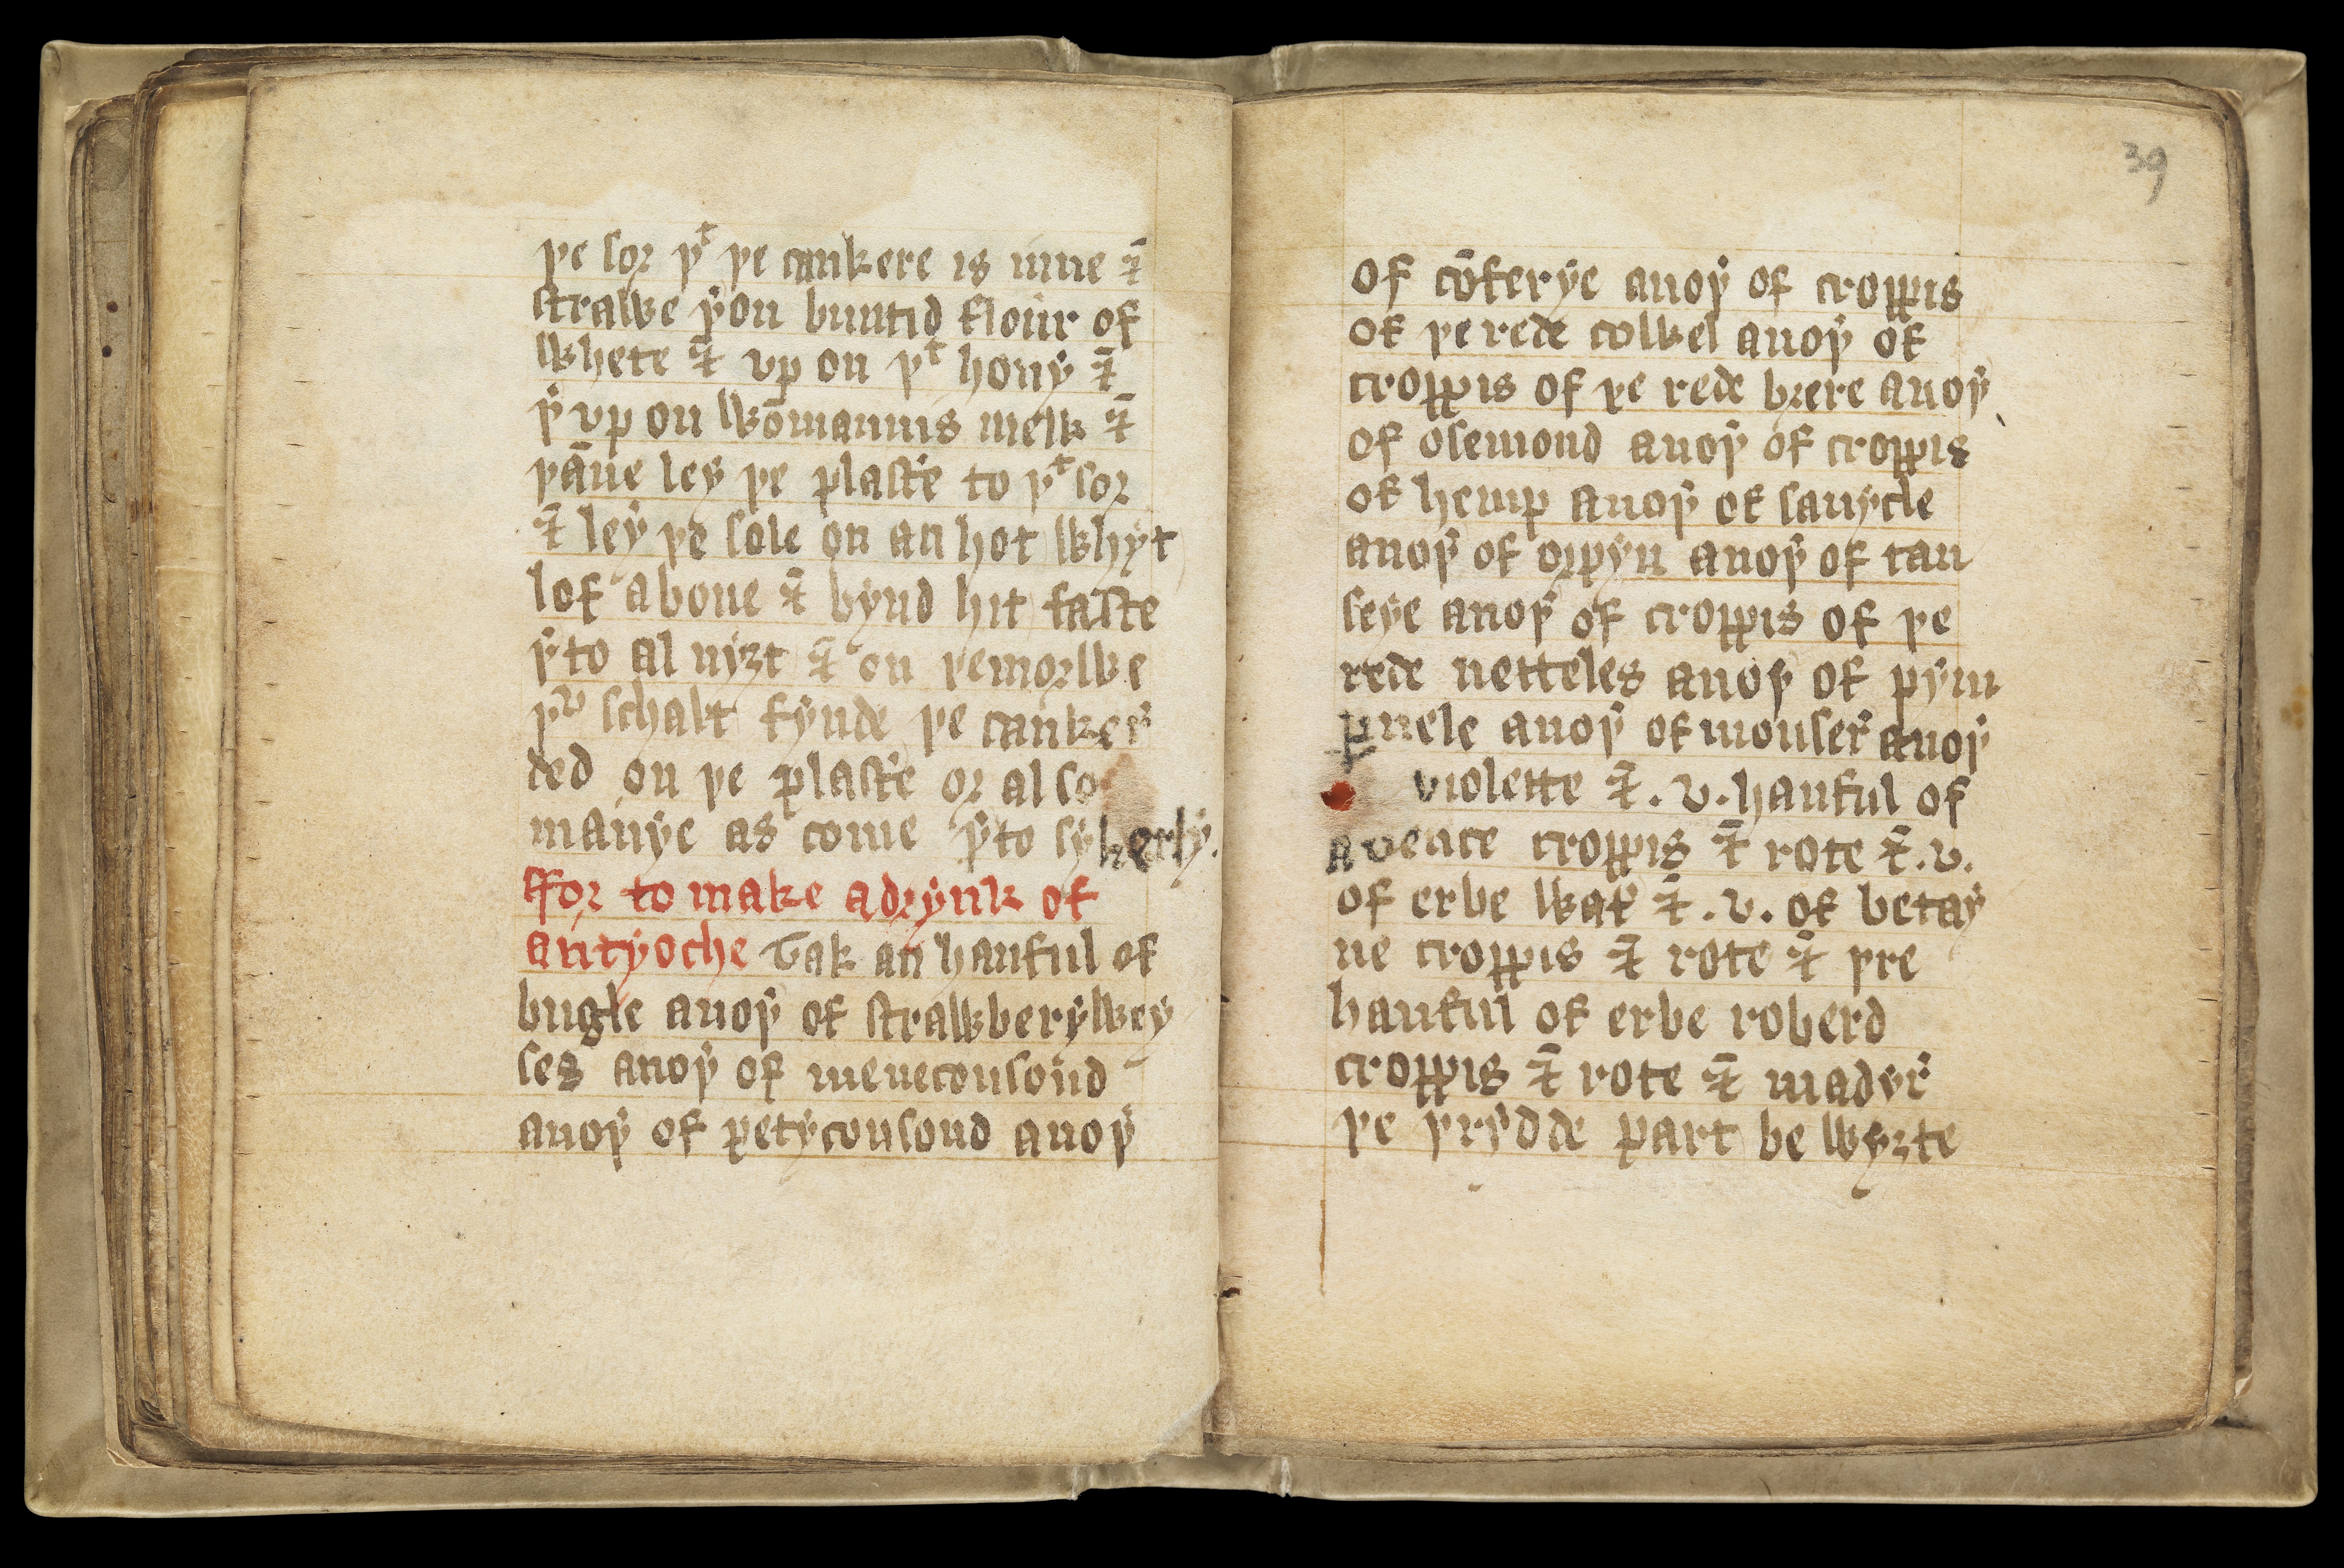 þe sor þᵗ þe cankere is inne ⁊
strawe þ'on buntid flour of
whete ⁊ vp on þᵗ hony ⁊
þ' vp on wōmannis melk ⁊
þāne ley þe plast'e to þᵗ sor
⁊ ley þe sole on an hot whyt
lof aboue ⁊ bynd hit faste
þ'to al nyȝt ⁊ on þe morwe
þᵘ schalt fynde þe canker'
ded on þe plast'e or al so
manye as come þ'to sykerly.
ffor to make a drynk of
antyoche Tak an hanful of
bugle anoþ' of strawberywey
ses anoþ' of meneconsoud
anoþ' of petyconsoud anoþ'
39
of cōferye anoþ' of croppis
of þe rede colwel anoþ' of
croppis of þe rede brere anoþ'
of osemond anoþ' of croppis
of hemp anoþ' of sanycle
anoþ' of orpyn anoþ' of tan
seye anoþ' of croppis of þe
rede netteles anoþ' of pym
pnele anoþ' of mouser' anoþ'
violette ⁊ .v. hanful of
avence croppis ⁊ rote ⁊ .v.
of erbe wat' ⁊ .v. of betay
ne croppis ⁊ rote ⁊ þre
hanful of erbe roberd
croppis ⁊ rote ⁊ madyr'
þe þrydde part be wyȝte